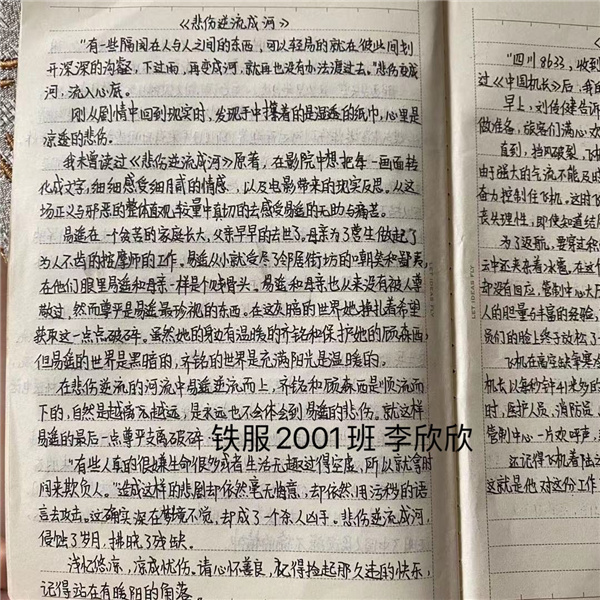 《悲伤逆流成河》
"有一些隔阂在人与人之间的东西,可以轻易的就在彼此间划
开深深的沟壑,下过雨,再变成河,就再也没有办法渡过去。"悲伤变成
河,流入心底。
刚从剧情中回到现实时,发现手中撑着的是湿透的纸巾,心里是
凉透的悲伤。
我未曾读过《悲伤逆流成河》原著,在影院中想把每一画面转
化成文字,细细感受细月贰的情感,以及电影带来的现实反思。从这
场正义与邪恶的整体直观较量中真切的去感受易遥的无助与痛苦。
易遥在一个贫苦的家庭长大,父亲早早的去世了。母亲为了营生做起了
为人不齿的按摩师的工作。易遥从小就受尽了邻居街坊的嘲笑和鄙夷,
在他们眼里易遥和母亲一样是个贱骨头。易遥和母亲也从来没有被人尊
敬过,然而尊严是易遥最珍视的东西。在这灰暗的世界她挣扎着希望
获取这一点点破碎。虽然她的身边有温暖的齐铭和保护她的顾森西,
但易遥的世界是黑暗的,齐铭的世界是充满阳光是温暖的。
在悲伤逆流的河流中易遥逆流而上,齐铭和顾森西是顺流而
下的,自然是越离越远,是永远也不会体会到易遥的悲伤。就这样
易遥的最后一点尊严支离破碎
"有些人真的很嫌生命很多或者生活无趣过得空虚,所以就拿时
间来欺负人。"造成这样的悲剧却依然毫无悔意,却依然用污秽的语
言去攻击。这确实深在梦境不觉,却成了一个杀人凶手。悲伤逆流成河,
侵蚀了岁月,拂晓了残缺。
浅忆悠凉,凉成忧伤。请心怀善良,记得捡起那久违的快乐,
记得站在有暖阳的角落。
铁服2001班 李欣欣
"四川8633,收到
过《中国机长》后,我的
早上,刘传健告诉
做准备,旅客们满心欢
直到,挡风破裂,飞机
由于强大的气流不能及时
奋力控制住飞机。这时飞
丧失理性,即使知道结局
为了返航,要穿过积
云中还夹杂着冰雹。在这个
却没有回应,管制中心大厅
人的胆量与丰富的经验,
员们的脸上终于放松了
飞机在高空缺氧寒冷
机长以每秒钟十米多的
时,医护人员、消防员、
管制中心一片欢呼声。
还记得飞机着陆之
这就是他对这份工作